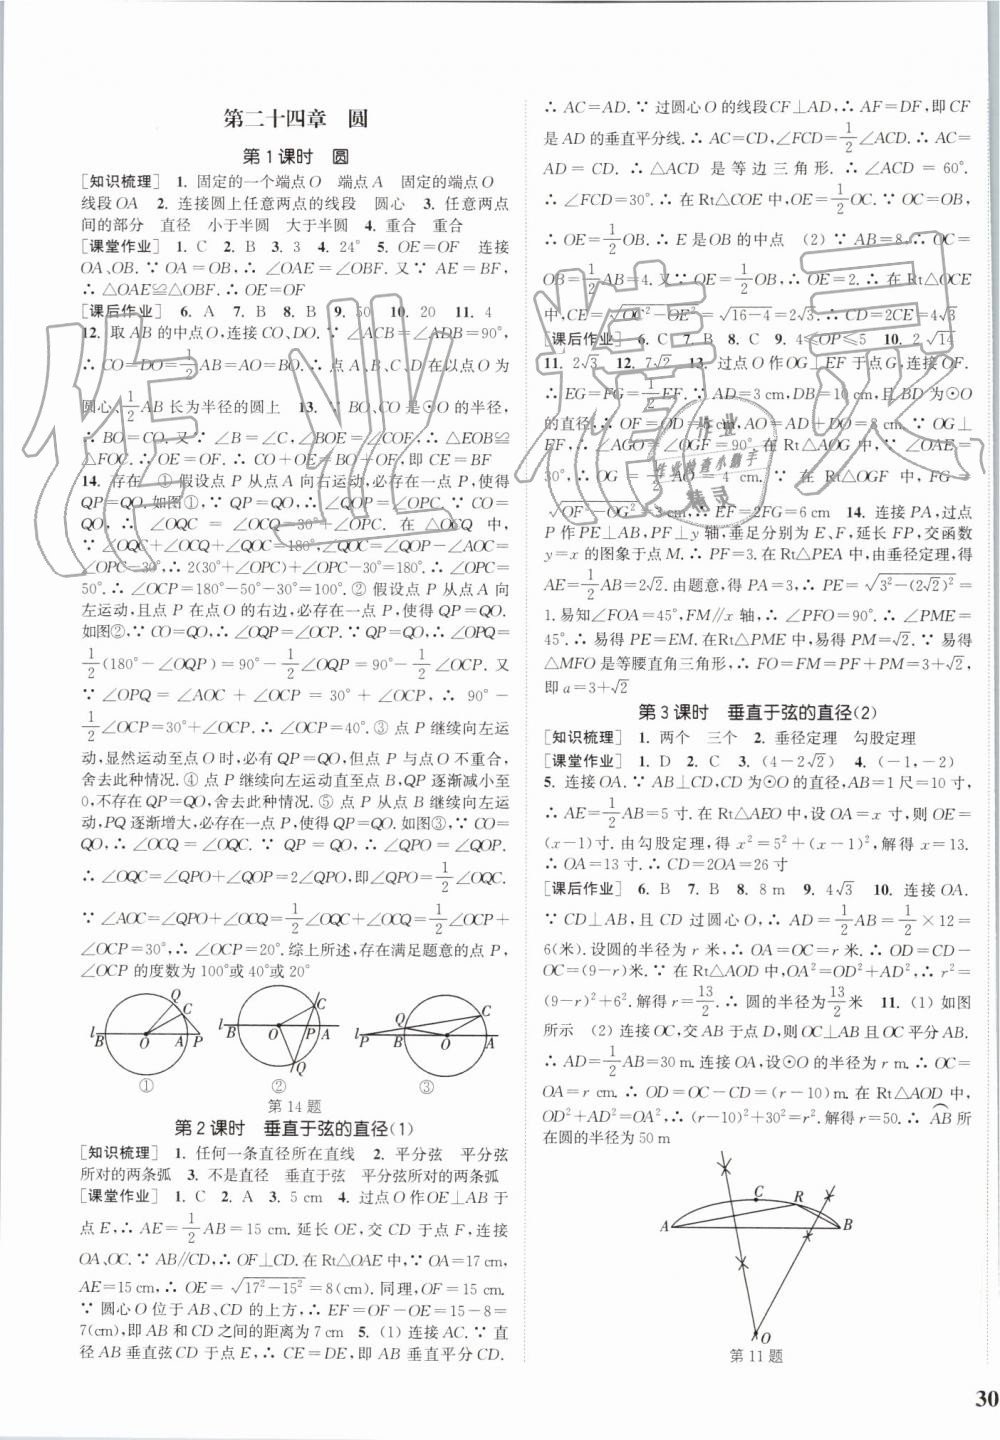 第二十四章　圆
第1课时　圆
[知识梳理]　1. 固定的一个端点O　端点A　固定的端点O
线段OA　2. 连接圆上任意两点的线段　圆心　3. 任意两点
间的部分　直径　小于半圆　大于半圆　4. 重合　重合
[课堂作业]　1. C　2. B　3. 3　4. 24°　5. OE=OF　连接
OA、OB. ∵ OA=OB, ∴ ∠OAE=∠OBF. 又∵ AE=BF,
∴ △OAE≌△OBF. ∴ OE=OF
[课后作业]　6. A　7. B　8. B　9. 50　10. 20　11. 4
12. 取AB的中点O,连接CO、DO. ∵ ∠ACB=∠ADB=90°,
∴ CO=DO=1/2AB=AO=BO. ∴ 点A、B、C、D在以点O为
圆心、1/2AB长为半径的圆上　13. ∵ BO、CO是⊙O的半径,
∴ BO=CO. 又∵ ∠B=∠C,∠BOE=∠COF, ∴ △EOB≌
△FOC. ∴ OE=OF. ∴ CO+OE=BO+OF,即CE=BF
14. 存在　① 假设点P从点A向右运动,必存在一点P,使得
QP=QO,如图①, ∵ QP=QO, ∴ ∠QOP=∠OPC. ∵ CO=
QO, ∴ ∠OQC=∠OCQ=30°+∠OPC. 在△OCQ中,
∵ ∠OQC+∠OCQ+∠QOC=180°,∠QOC=∠QOP-∠AOC=
∠OPC-30°, ∴ 2(30°+∠OPC)+∠OPC-30°=180°. ∴ ∠OPC=
50°. ∴ ∠OCP=180°-50°-30°=100°. ② 假设点P从点A向
左运动,且点P在点O的右边,必存在一点P,使得QP=QO.
如图②, ∵ CO=QO, ∴ ∠OQP=∠OCP. ∵ QP=QO, ∴ ∠OPQ=
1/2(180°-∠OQP)=90°-1/2∠OQP=90°-1/2∠OCP. 又
∵ ∠OPQ=∠AOC+∠OCP=30°+∠OCP, ∴ 90°-
1/2∠OCP=30°+∠OCP. ∴ ∠OCP=40°. ③ 点P继续向左运
动,显然运动至点O时,必有QP=QO,但点P与点O不重合,
舍去此种情况. ④ 点P继续向左运动直至点B,QP逐渐减小至
0,不存在QP=QO,舍去此种情况. ⑤ 点P从点B向左运
动,PQ逐渐增大,必存在一点P,使得QP=QO. 如图③, ∵ CO=
QO, ∴ ∠OCQ=∠OQC. ∵ QP=QO, ∴ ∠QPO=∠QOP.
∴ ∠OQC=∠QPO+∠QOP=2∠QPO,即∠QPO=1/2∠OQC.
∵ ∠AOC=∠QPO+∠OCP=1/2∠OQC+∠OCQ=1/2∠OCP+
∠OCP=30°, ∴ ∠OCP=20°. 综上所述,存在满足题意的点P,
∠OCP的度数为100°或40°或20°
Q C l B O A P ①
C l B O P A Q ②
C Q l P B O A ③
第14题
第2课时　垂直于弦的直径(1)
[知识梳理]　1. 任何一条直径所在直线　2. 平分弦　平分弦
所对的两条弧　3. 不是直径　垂直于弦　平分弦所对的两条弧
[课堂作业]　1. C　2. A　3. 5 cm　4. 过点O作OE⊥AB于
点E, ∴ AE=1/2AB=15 cm. 延长OE,交CD于点F,连接
OA、OC. ∵ AB∥CD, ∴ OF⊥CD. 在Rt△OAE中, ∵ OA=17 cm,
AE=15 cm, ∴ OE=√(17²-15²)=8(cm). 同理,OF=15 cm.
∵ 圆心O位于AB、CD的上方, ∴ EF=OF-OE=15-8=
7(cm),即AB和CD之间的距离为7 cm　5. (1) 连接AC. ∵ 直
径AB垂直弦CD于点E, ∴ CE=DE,即AB垂直平分CD.
∴ AC=AD. ∵ 过圆心O的线段CF⊥AD, ∴ AF=DF,即CF
是AD的垂直平分线. ∴ AC=CD,∠FCD=1/2∠ACD. ∴ AC=
AD=CD. ∴ △ACD是等边三角形. ∴ ∠ACD=60°.
∴ ∠FCD=30°. ∴ 在Rt△COE中,OE=1/2OC. ∵ OC=OB,
∴ OE=1/2OB. ∴ E是OB的中点　(2) ∵ AB=8, ∴ OC=
OB=1/2AB=4. 又∵ OE=1/2OB, ∴ OE=2. ∴ 在Rt△OCE
中,CE=√(OC²-OE²)=√(16-4)=2√3. ∴ CD=2CE=4√3
[课后作业]　6. C　7. B　8. C　9. 4≤OP≤5　10. 2√14
11. 2√3　12. 7√2　13. 过点O作OG⊥EF于点G,连接OF.
∴ EG=FG=1/2EF. ∵ AD=3 cm,DB=10 cm,且BD为⊙O
的直径, ∴ OF=OD=5 cm,AO=AD+DO=8 cm. ∵ OG⊥
EF, ∴ ∠AGO=∠OGF=90°. 在Rt△AOG中, ∵ ∠OAE=
30°, ∴ OG=1/2OA=4 cm. ∴ 在Rt△OGF中,FG=
√(OF²-OG²)=3 cm. ∴ EF=2FG=6 cm　14. 连接PA,过点
P作PE⊥AB、PF⊥y轴,垂足分别为E、F,延长FP,交函数
y=x的图象于点M. ∴ PF=3. 在Rt△PEA中,由垂径定理,得
AE=1/2AB=2√2. 由题意,得PA=3, ∴ PE=√(3²-(2√2)²)=
1. 易知∠FOA=45°,FM∥x轴, ∴ ∠PFO=90°. ∴ ∠PME=
45°. ∴ 易得PE=EM. 在Rt△PME中,易得PM=√2. ∵ 易得
△MFO是等腰直角三角形, ∴ FO=FM=PF+PM=3+√2,
即a=3+√2
第3课时　垂直于弦的直径(2)
[知识梳理]　1. 两个　三个　2. 垂径定理　勾股定理
[课堂作业]　1. D　2. C　3. (4-2√2)　4. (-1,-2)
5. 连接OA. ∵ AB⊥CD,CD为⊙O的直径,AB=1尺=10寸,
∴ AE=1/2AB=5寸. 在Rt△AEO中,设OA=x寸,则OE=
(x-1)寸. 由勾股定理,得x²=5²+(x-1)²,解得x=13.
∴ OA=13寸. ∴ CD=2OA=26寸
[课后作业]　6. B　7. B　8. 8 m　9. 4√3　10. 连接OA.
∵ CD⊥AB,且CD过圆心O, ∴ AD=1/2AB=1/2×12=
6(米). 设圆的半径为r米, ∴ OA=OC=r米. ∴ OD=CD-
OC=(9-r)米. ∵ 在Rt△AOD中,OA²=OD²+AD², ∴ r²=
(9-r)²+6². 解得r=13/2. ∴ 圆的半径为13/2米　11. (1) 如图
所示　(2) 连接OC,交AB于点D,则OC⊥AB且OC平分AB.
∴ AD=1/2AB=30 m. 连接OA,设⊙O的半径为r m. ∴ OC=
OA=r cm. ∴ OD=OC-CD=(r-10)m. 在Rt△AOD中,
OD²+AD²=OA², ∴ (r-10)²+30²=r². 解得r=50. ∴ AB所
在圆的半径为50 m
C R A B O
第11题
30
作业精灵
作业
作业检查小助手
精灵